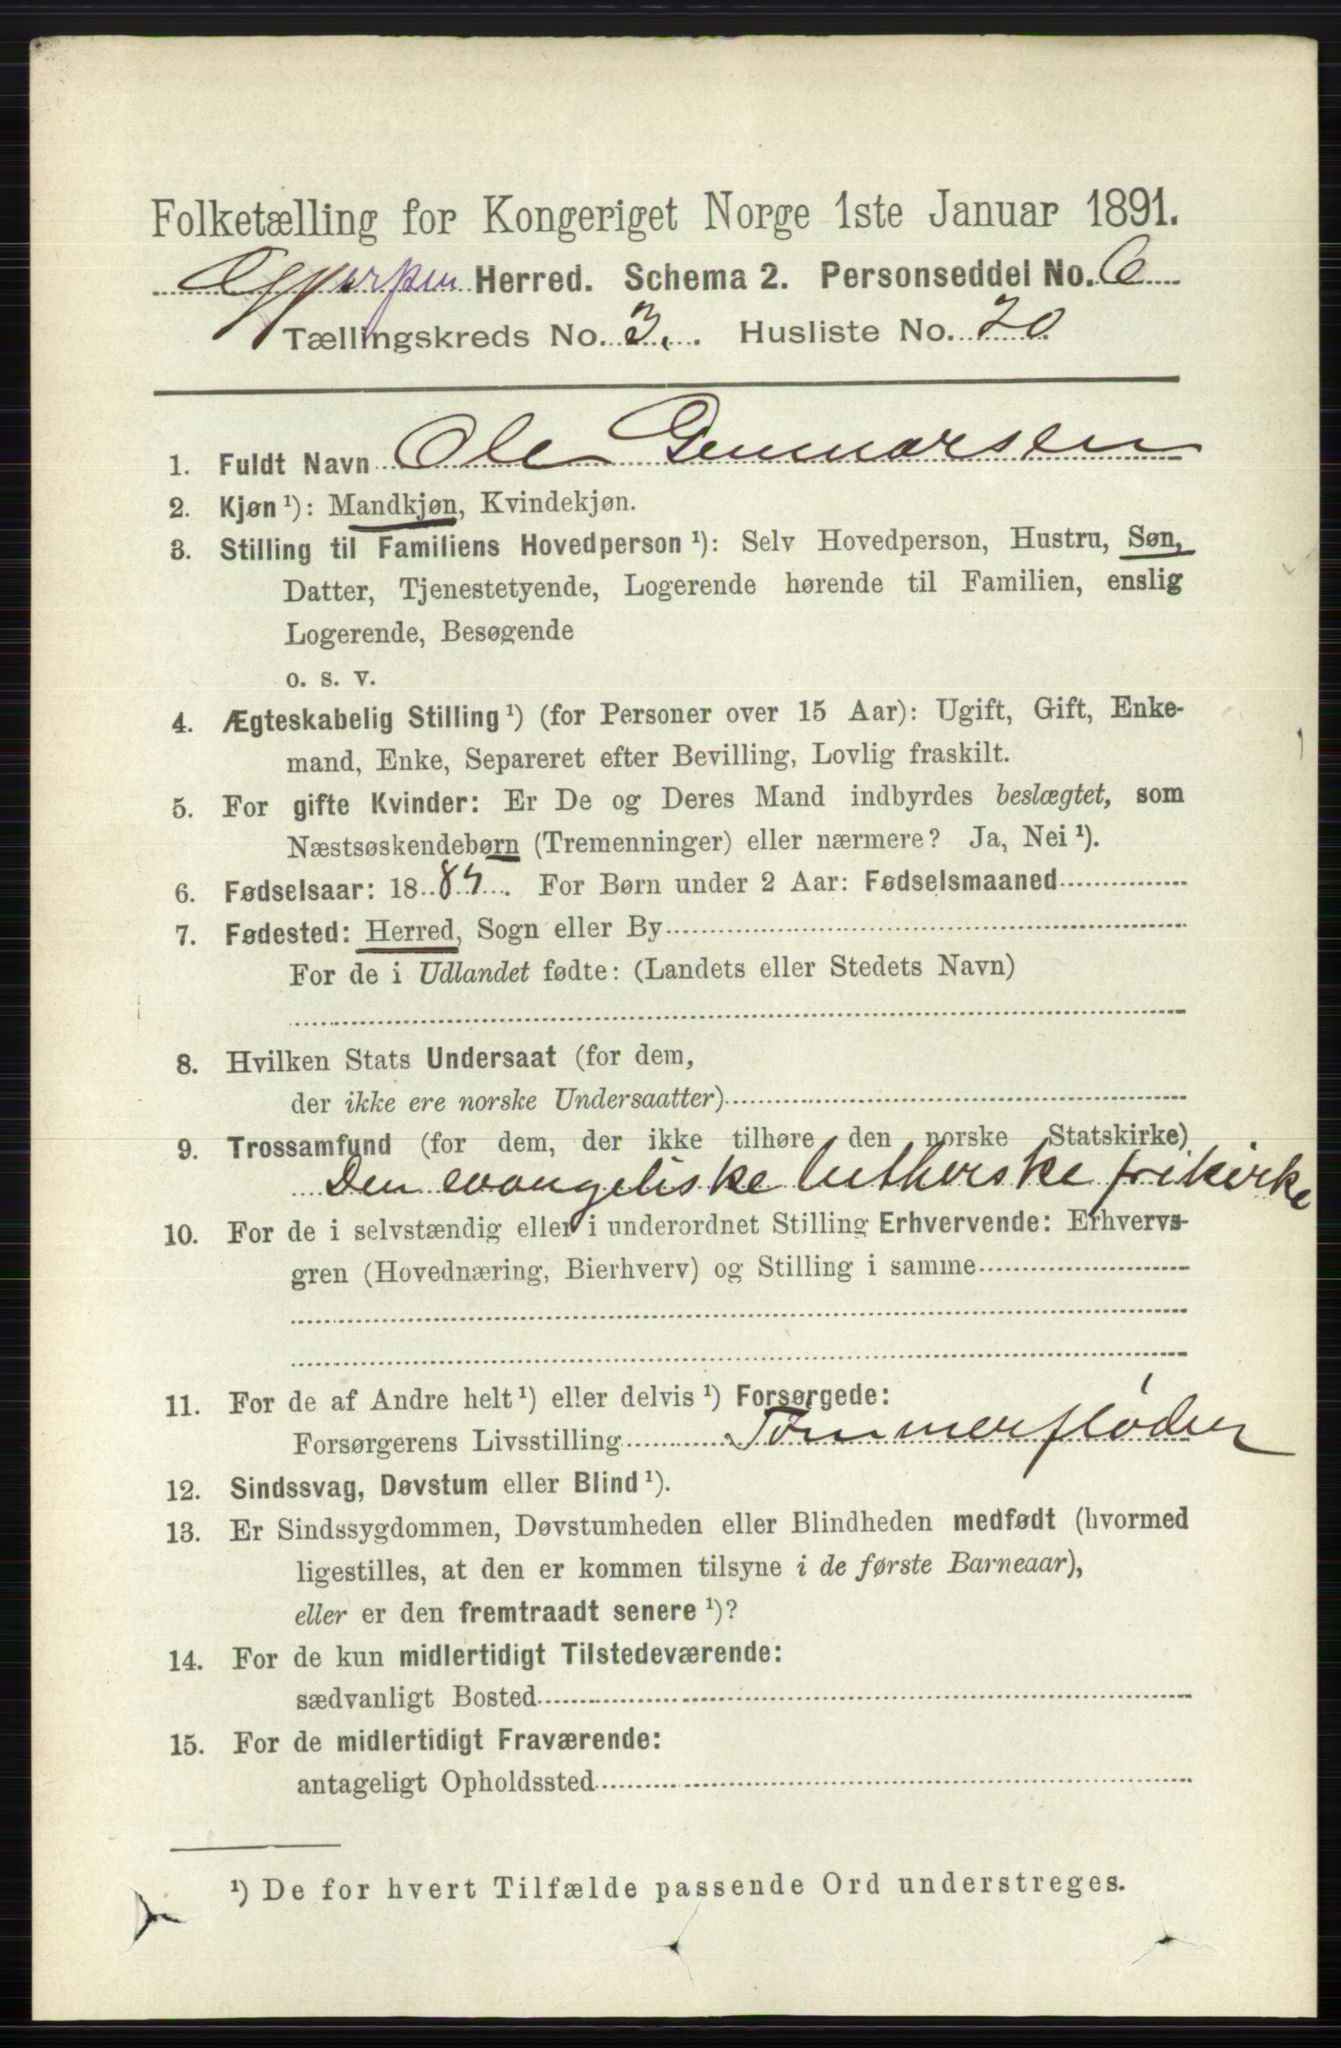 Folketælling for Kongeriget Norge 1ste Januar 1891.
Gjerpen Herred. Schema 2. Personseddel No. 6
Tællingskreds No. 3. Husliste No. 20
1. Fuldt Navn Ole Gunnarsen
2. Kjøn ¹): Mandkjøn, Kvindekjøn.
3. Stilling til Familiens Hovedperson ¹): Selv Hovedperson, Hustru, Søn,
Datter, Tjenestetyende, Logerende hørende til Familien, enslig
Logerende, Besøgende
o. s. v.
4. Ægteskabelig Stilling ¹) (for Personer over 15 Aar): Ugift, Gift, Enke-
mand, Enke, Separeret efter Bevilling, Lovlig fraskilt.
5. For gifte Kvinder: Er De og Deres Mand indbyrdes beslægtet, som
Næstsøskendebørn (Tremenninger) eller nærmere? Ja, Nei ¹).
6. Fødselsaar: 18 84. For Børn under 2 Aar: Fødselsmaaned
7. Fødested: Herred, Sogn eller By
For de i Udlandet fødte: (Landets eller Stedets Navn)
8. Hvilken Stats Undersaat (for dem,
der ikke ere norske Undersaatter)
9. Trossamfund (for dem, der ikke tilhøre den norske Statskirke)
Den evangeliske lutherske frikirke
10. For de i selvstændig eller i underordnet Stilling Erhvervende: Erhvervs-
gren (Hovednæring, Bierhverv) og Stilling i samme
11. For de af Andre helt ¹) eller delvis ¹) Forsørgede:
Forsørgerens Livsstilling Tømmerfløder
12. Sindssvag, Døvstum eller Blind ¹).
13. Er Sindssygdommen, Døvstumheden eller Blindheden medfødt (hvormed
ligestilles, at den er kommen tilsyne i de første Barneaar),
eller er den fremtraadt senere ¹)?
14. For de kun midlertidigt Tilstedeværende:
sædvanligt Bosted
15. For de midlertidigt Fraværende:
antageligt Opholdssted
¹) De for hvert Tilfælde passende Ord understreges.